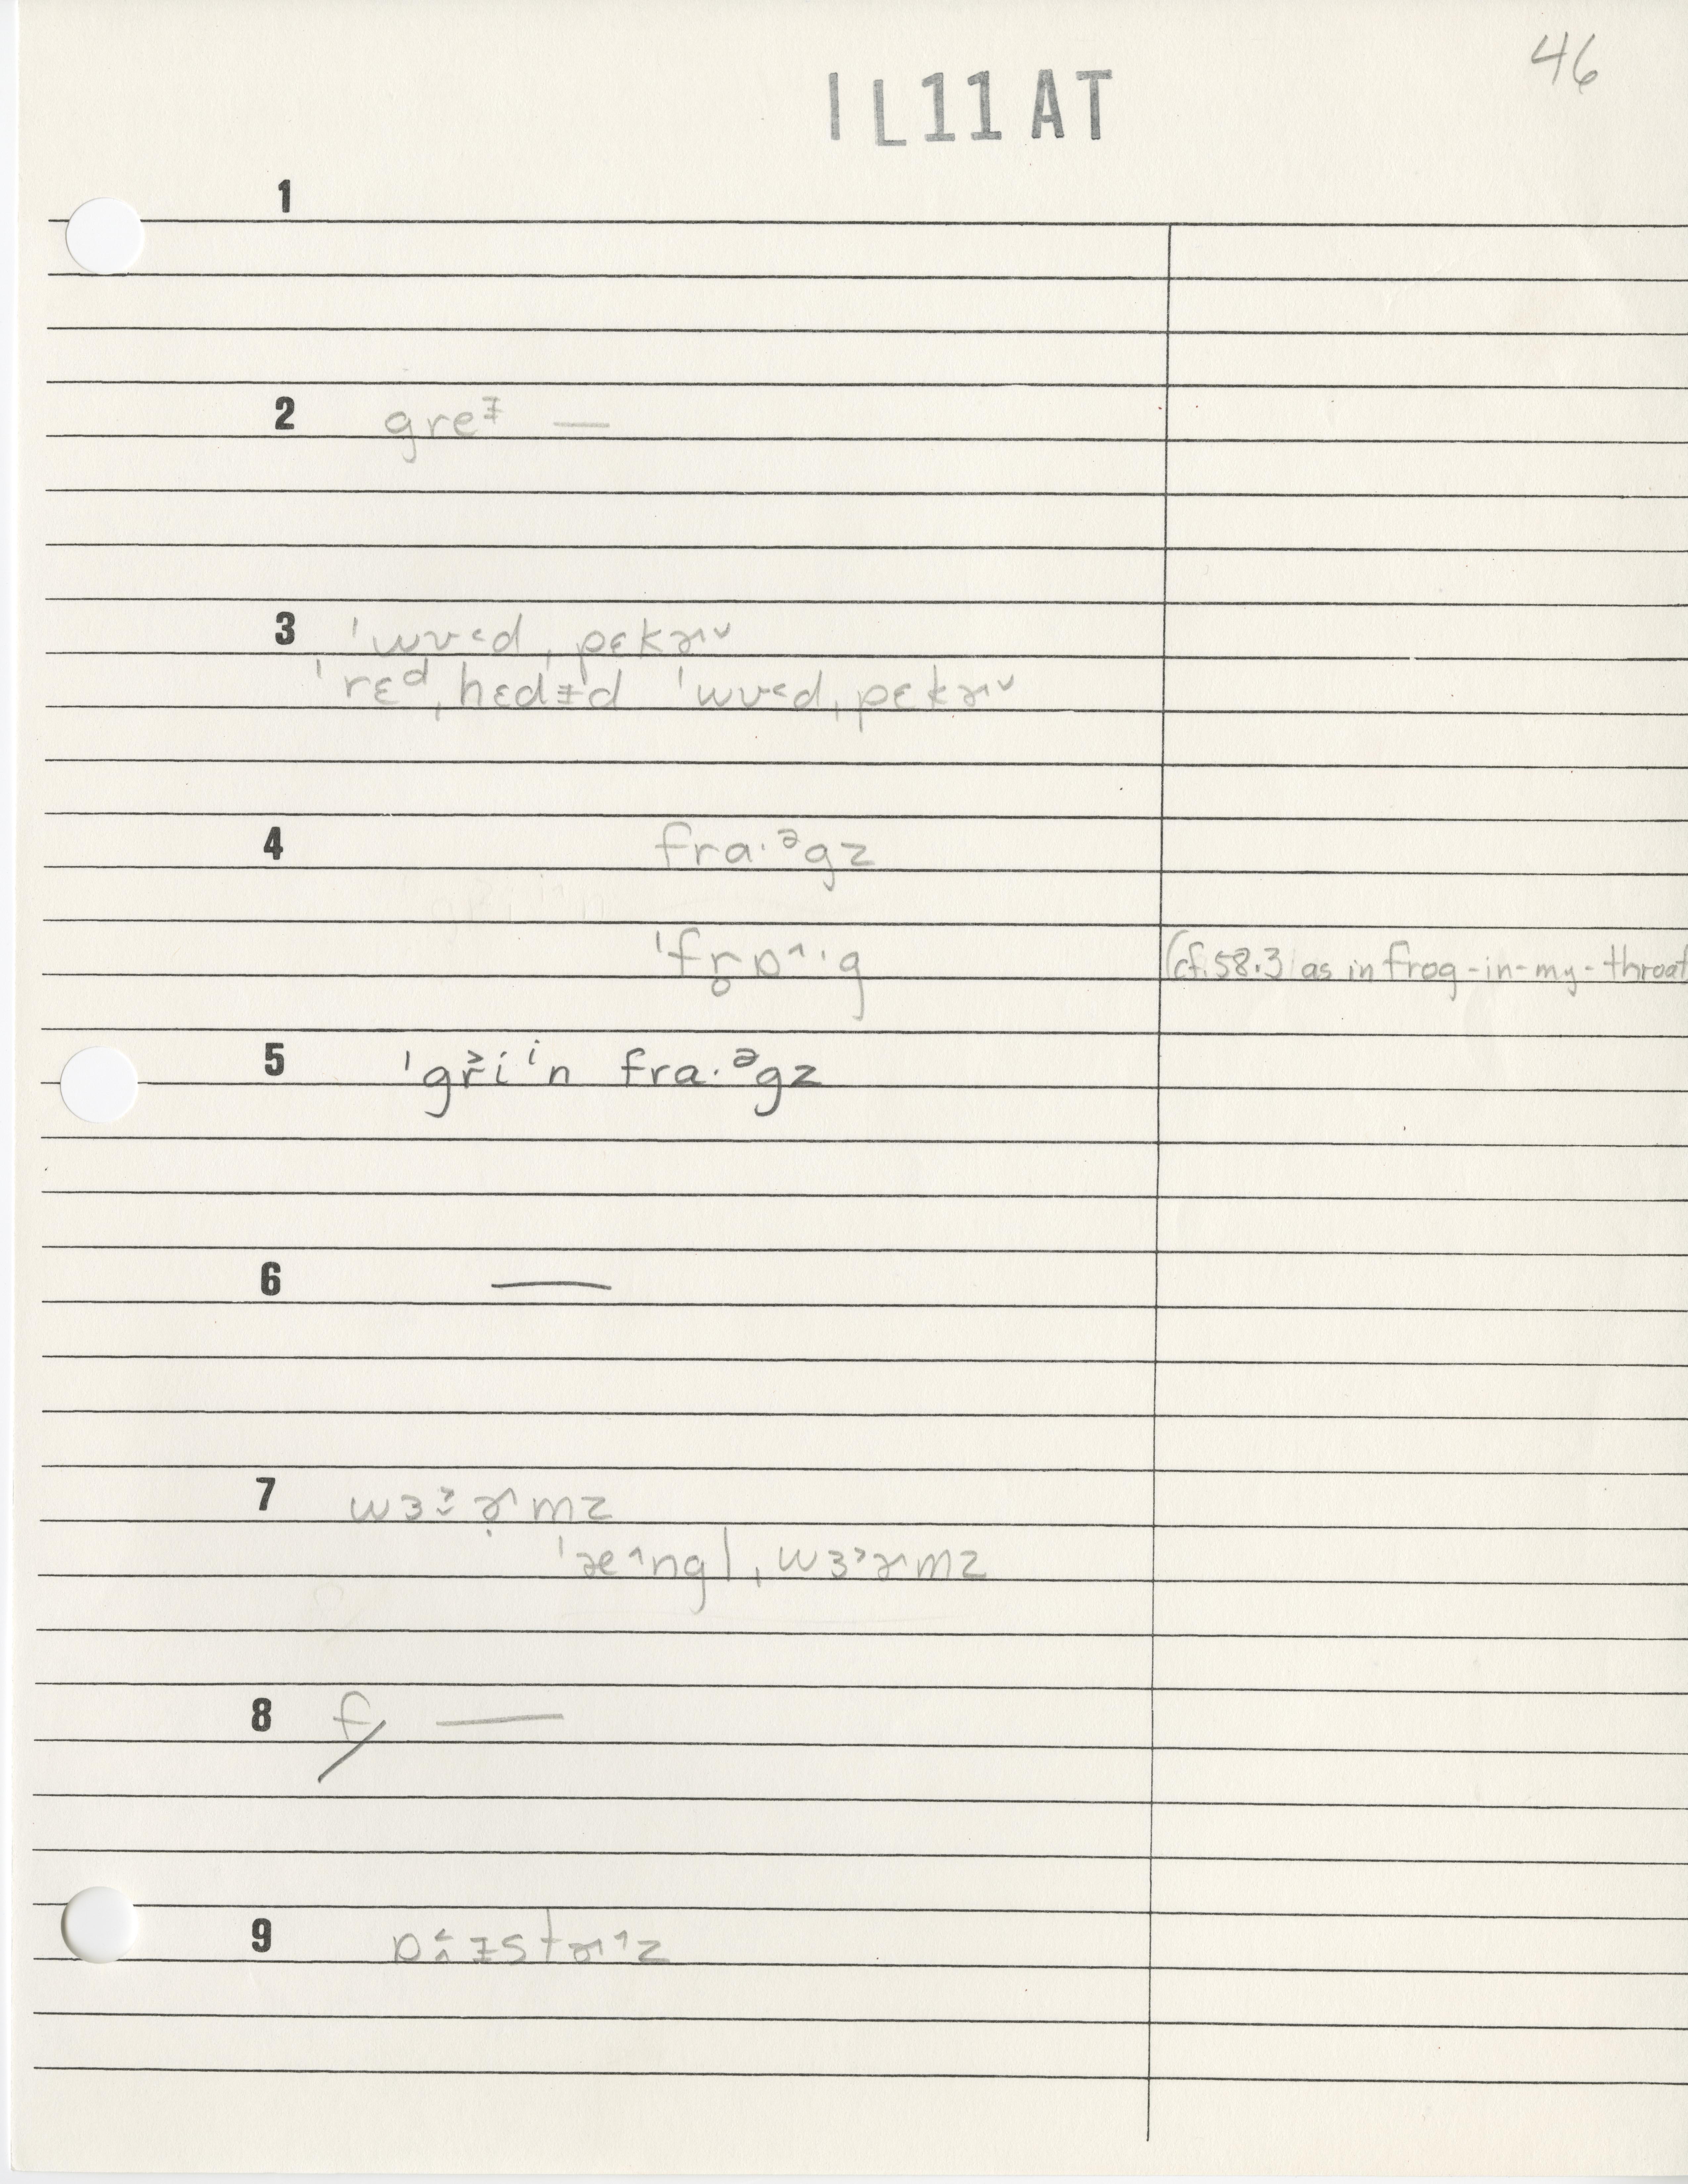 46
1L11AT
1
2 greᵻ —
3 ˈwʊ˂d ˌpɛkɚ˅
ˈrɛᵈˌhɛdᵻd ˈwʊ˂dˌpɛkɚ˅
4 fra·ᵊgz
ˈfr̥ɒ˄·g (cf. 58.3) as in frog-in-my-throat
5 ˈgř̬iⁱn fra·ᵊgz
6 —
7 wɜ˒̬ɚ̣mz
ˈæ˄ŋglˌwɜ˒ɚmz
8 —
9 ɒ˂̭ᵻstɚ˄z